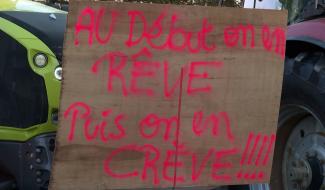 AU Début on en
RÊVE
Puis on en
CRÈVE !!!!